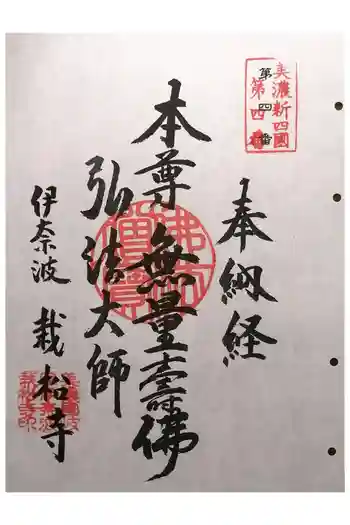 美濃新四國
第四番
第四番
奉納経
本尊無量壽佛
弘法大師
伊奈波
栽松寺